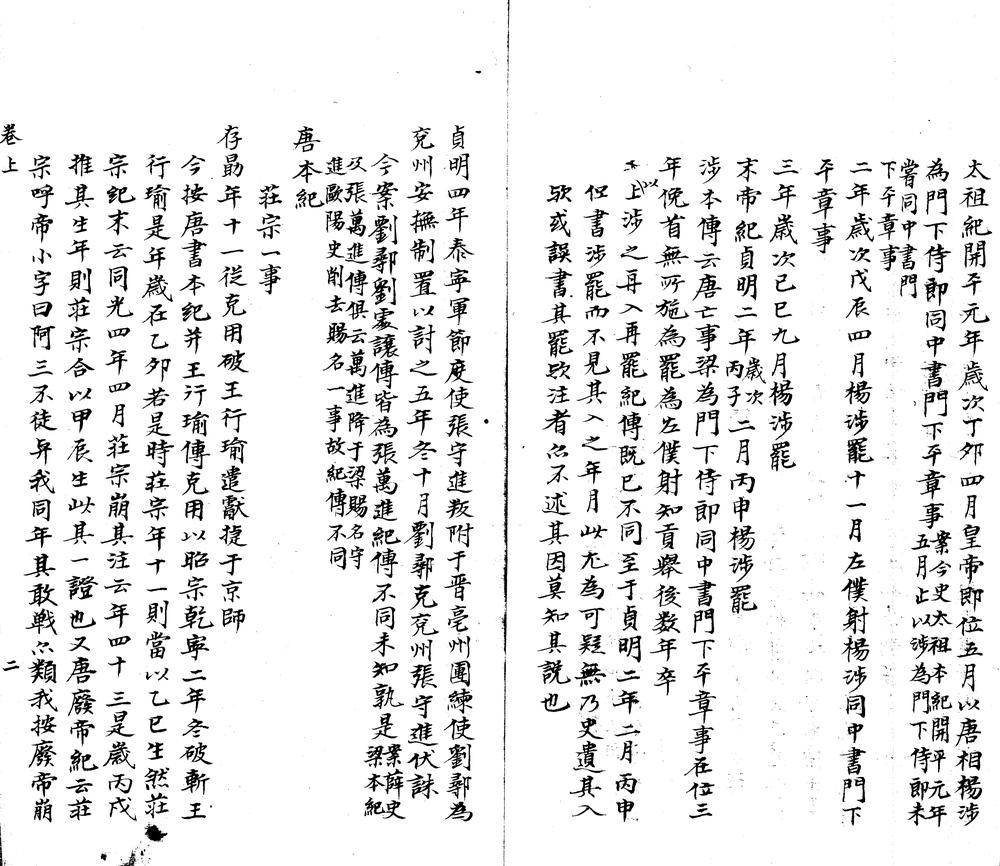 太祖紀開平元年歲次丁夘四月皇帝即位五月以唐相楊涉
為門下侍郎同中書門下平章事案今史太祖本紀開平元年
五月止以涉為門下侍郎未
嘗同中書門
下平章事
二年歲次戊辰四月楊涉罷十一月左僕射楊涉同中書門下
平章事
三年歲次己巳九月楊涉罷
末帝紀貞明二年歲次
丙子二月丙申楊涉罷
涉本傳云唐亡事梁為門下侍郎同中書門下平章事在位三
年俛首無所施為罷為左僕射知貢舉後数年卒
以上涉之再入再罷紀傳既已不同至于貞明二年二月丙申
但書涉罷而不見其入之年月此尤為可疑無乃史遺其入
欤或誤書其罷欤注者亦不述其因莫知其說也
貞明四年泰寧軍節度使張守進叛附于晋亳州團練使劉鄩為
兖州安撫制置以討之五年冬十月劉鄩克兖州張守進伏誅
今案劉鄩劉處讓傳皆為張萬進紀傳不同未知孰是案薛史
梁本紀
及張萬進傳俱云萬進降于梁賜名守
進歐陽史削去賜名一事故紀傳不同
唐本紀
莊宗一事
存勗年十一從克用破王行瑜遣獻捷于京師
今按唐書本紀并王行瑜傳克用以昭宗乾寧二年冬破斬王
行瑜是年歲在乙夘若是時莊宗年十一則當以乙巳生然莊
宗紀末云同光四年四月莊宗崩其注云年四十三是歲丙戌
推其生年則莊宗合以甲辰生此其一證也又唐廢帝紀云莊
宗呼帝小字曰阿三不徒與我同年其敢戰亦類我按廢帝崩
卷上 二